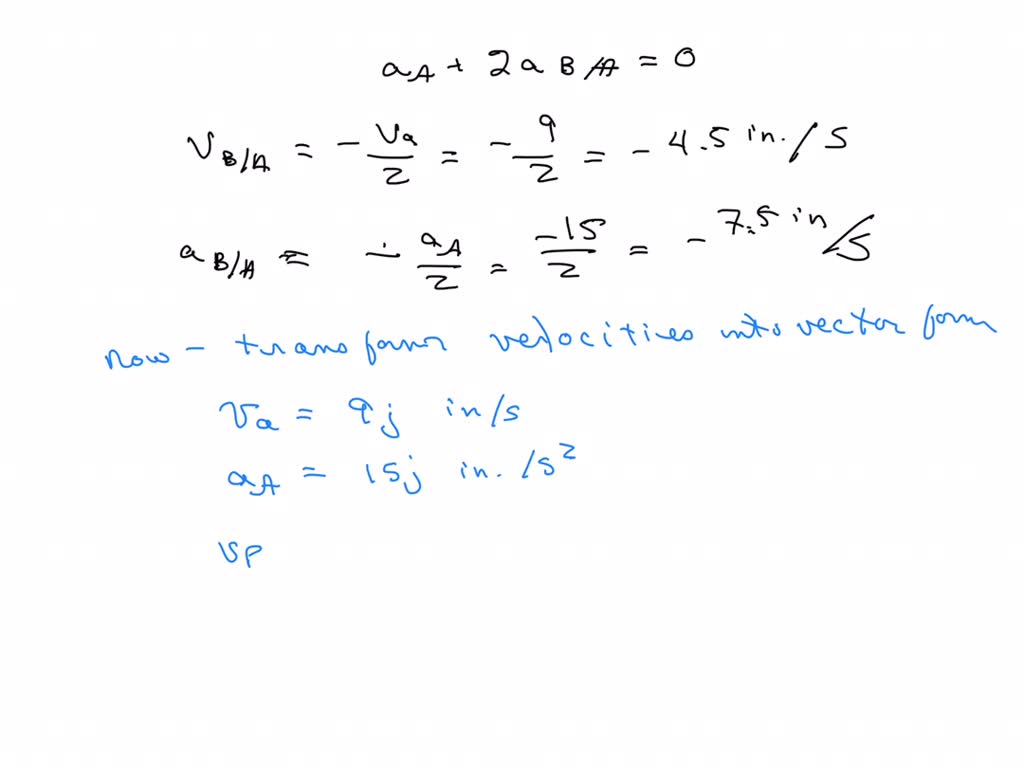 a_A + 2a_B/A = 0
V_B/A = - Va/2 = - 9/2 = - 4.5 in./s
a_B/A = - a_A/2 = -15/2 = - 7.5 in/s
now - transform velocitites into vector form
Va = 9j in/s
a_A = 15j in./s²
vp